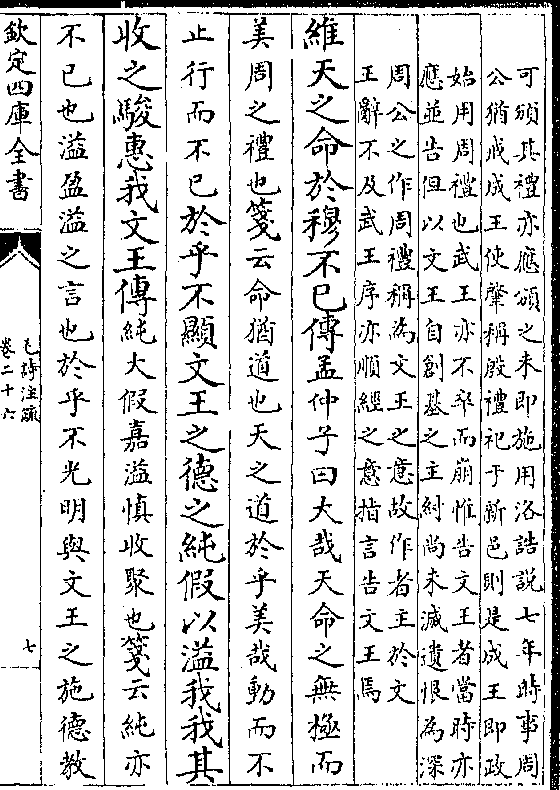 可頒其禮亦應頒之未即施用洛誥說七年時事周
公猶戒成王使肇稱殷禮祀于新邑則是成王即政
始用周禮也武王亦不卒而崩惟告文王者當時亦
應並告但以文王自創基之主紂尚未滅遺恨為深
周公之作周禮稱為文王之意故作者主於文
王辭不及武王序亦順經之意指言告文王焉
維天之命於穆不已傳孟仲子曰大哉天命之無極而
美周之禮也箋云命猶道也天之道於乎美哉動而不
止行而不已於乎不顯文王之德之純假以溢我我其
收之駿惠我文王傳純大假嘉溢慎收聚也箋云純亦
不已也溢盈溢之言也於乎不光明與文王之施德教
欽定四庫全書
毛詩注疏
卷二十六
七